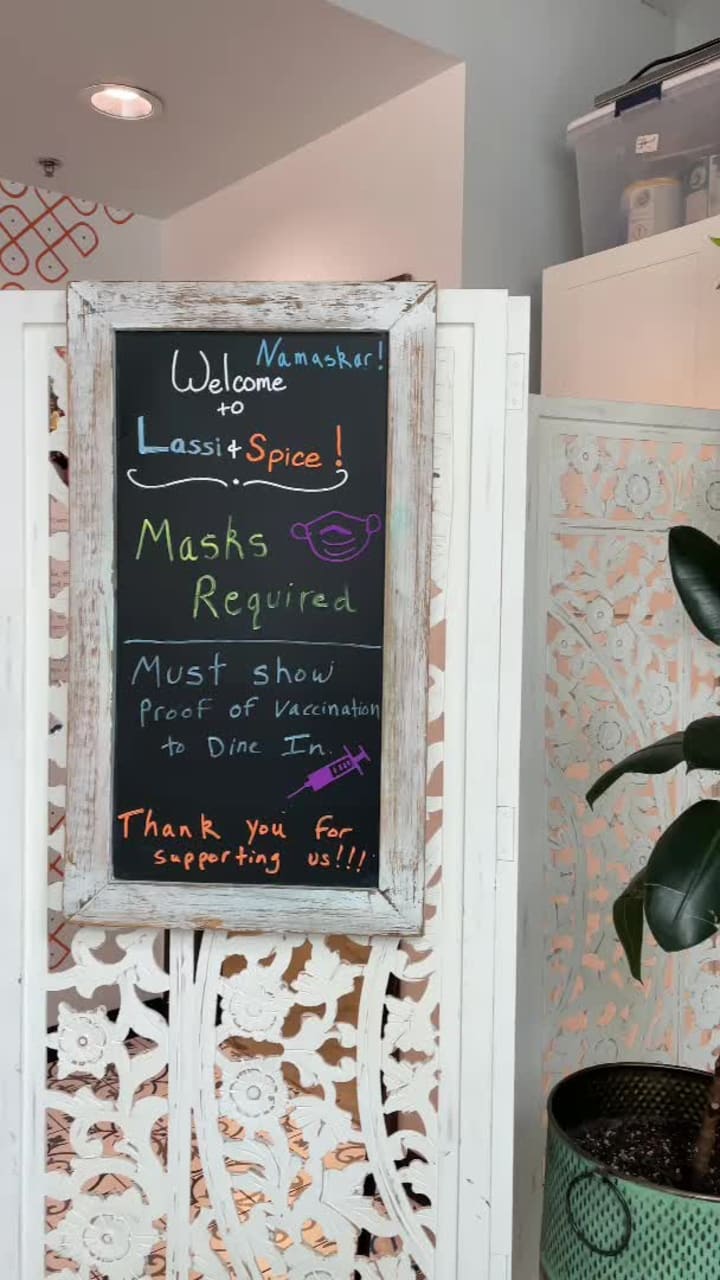 Namaskar!
Welcome
to
Lassi & Spice!
Masks
Required
Must show
Proof of Vaccination
to Dine In.
Thank you for
supporting us!!!